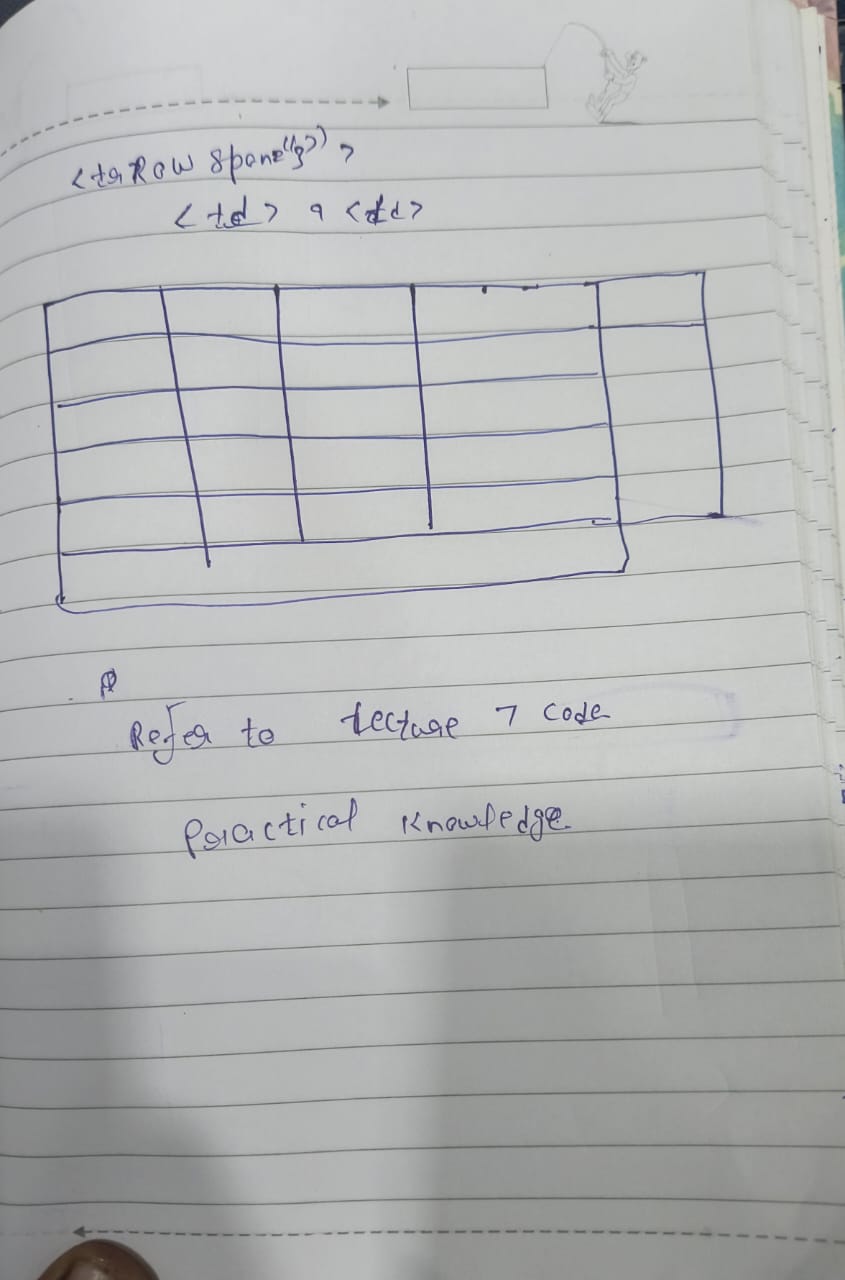 <tr Row span="3">
<td> 9 <td>
Refer to Lecture 7 code
Practical Knowledge